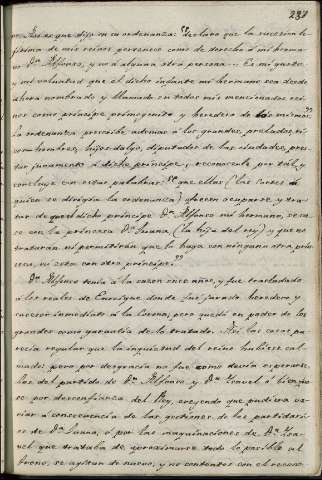 231
nes. En lo que dijo en su ordenanza: "declaro que la sucesion le-
jitima de mis reinos pertenece como de derecho á mi herma-
no Dn. Alfonso, y no á alguna otra persona... Es mi gusto
y mi voluntad que el dicho infante mi hermano sea desde
ahora nombrado y llamado en todos mis mencionados rei-
nos como principe primogenito y heredero de los mismos."
La ordenanza prescribe ademas á los grandes, prelados, ri-
cos hombres, hijos-dalgo, diputados de las ciudades, pres-
tar juramento á dicho principe, y reconocerle por tál, y
concluye con estas palabras: "que ellas (las Cortes á
quien se dirigia la ordenanza) ofrecen ocuparse, y tra-
tar de que el dicho principe Dn. Alfonso mi hermano, se ca-
se con la princesa Da. Juana, (la hija del rey) y que no
tratarán ni permitirán que la haya con ninguna otra prin-
cesa, ni esta con otro principe."
Dn. Alfonso tenia á la sazon once años, y fue trasladado
á los reales de Enrique donde fué jurado heredero y
sucesor inmediato á la Corona, pero quedó en poder de los
grandes como garantia de lo tratado. Asi las cosas pa-
recia regular que la inquietud del reino hubiese cal-
mado; pero por desgracia no fué como debia esperarse.
Los del partido de Dn. Alfonso y Da. Isavel ó bien no
se por desconfianza del Rey, creyendo que pudiera va-
riar á consecuencia de las gestiones de los partidarios
de Da. Juana, ó por las maquinaciones de Da. Isa-
vel que trataba de aproximarse todo lo posible al
trono, se agitan de nuevo, y no contentos con el recono-